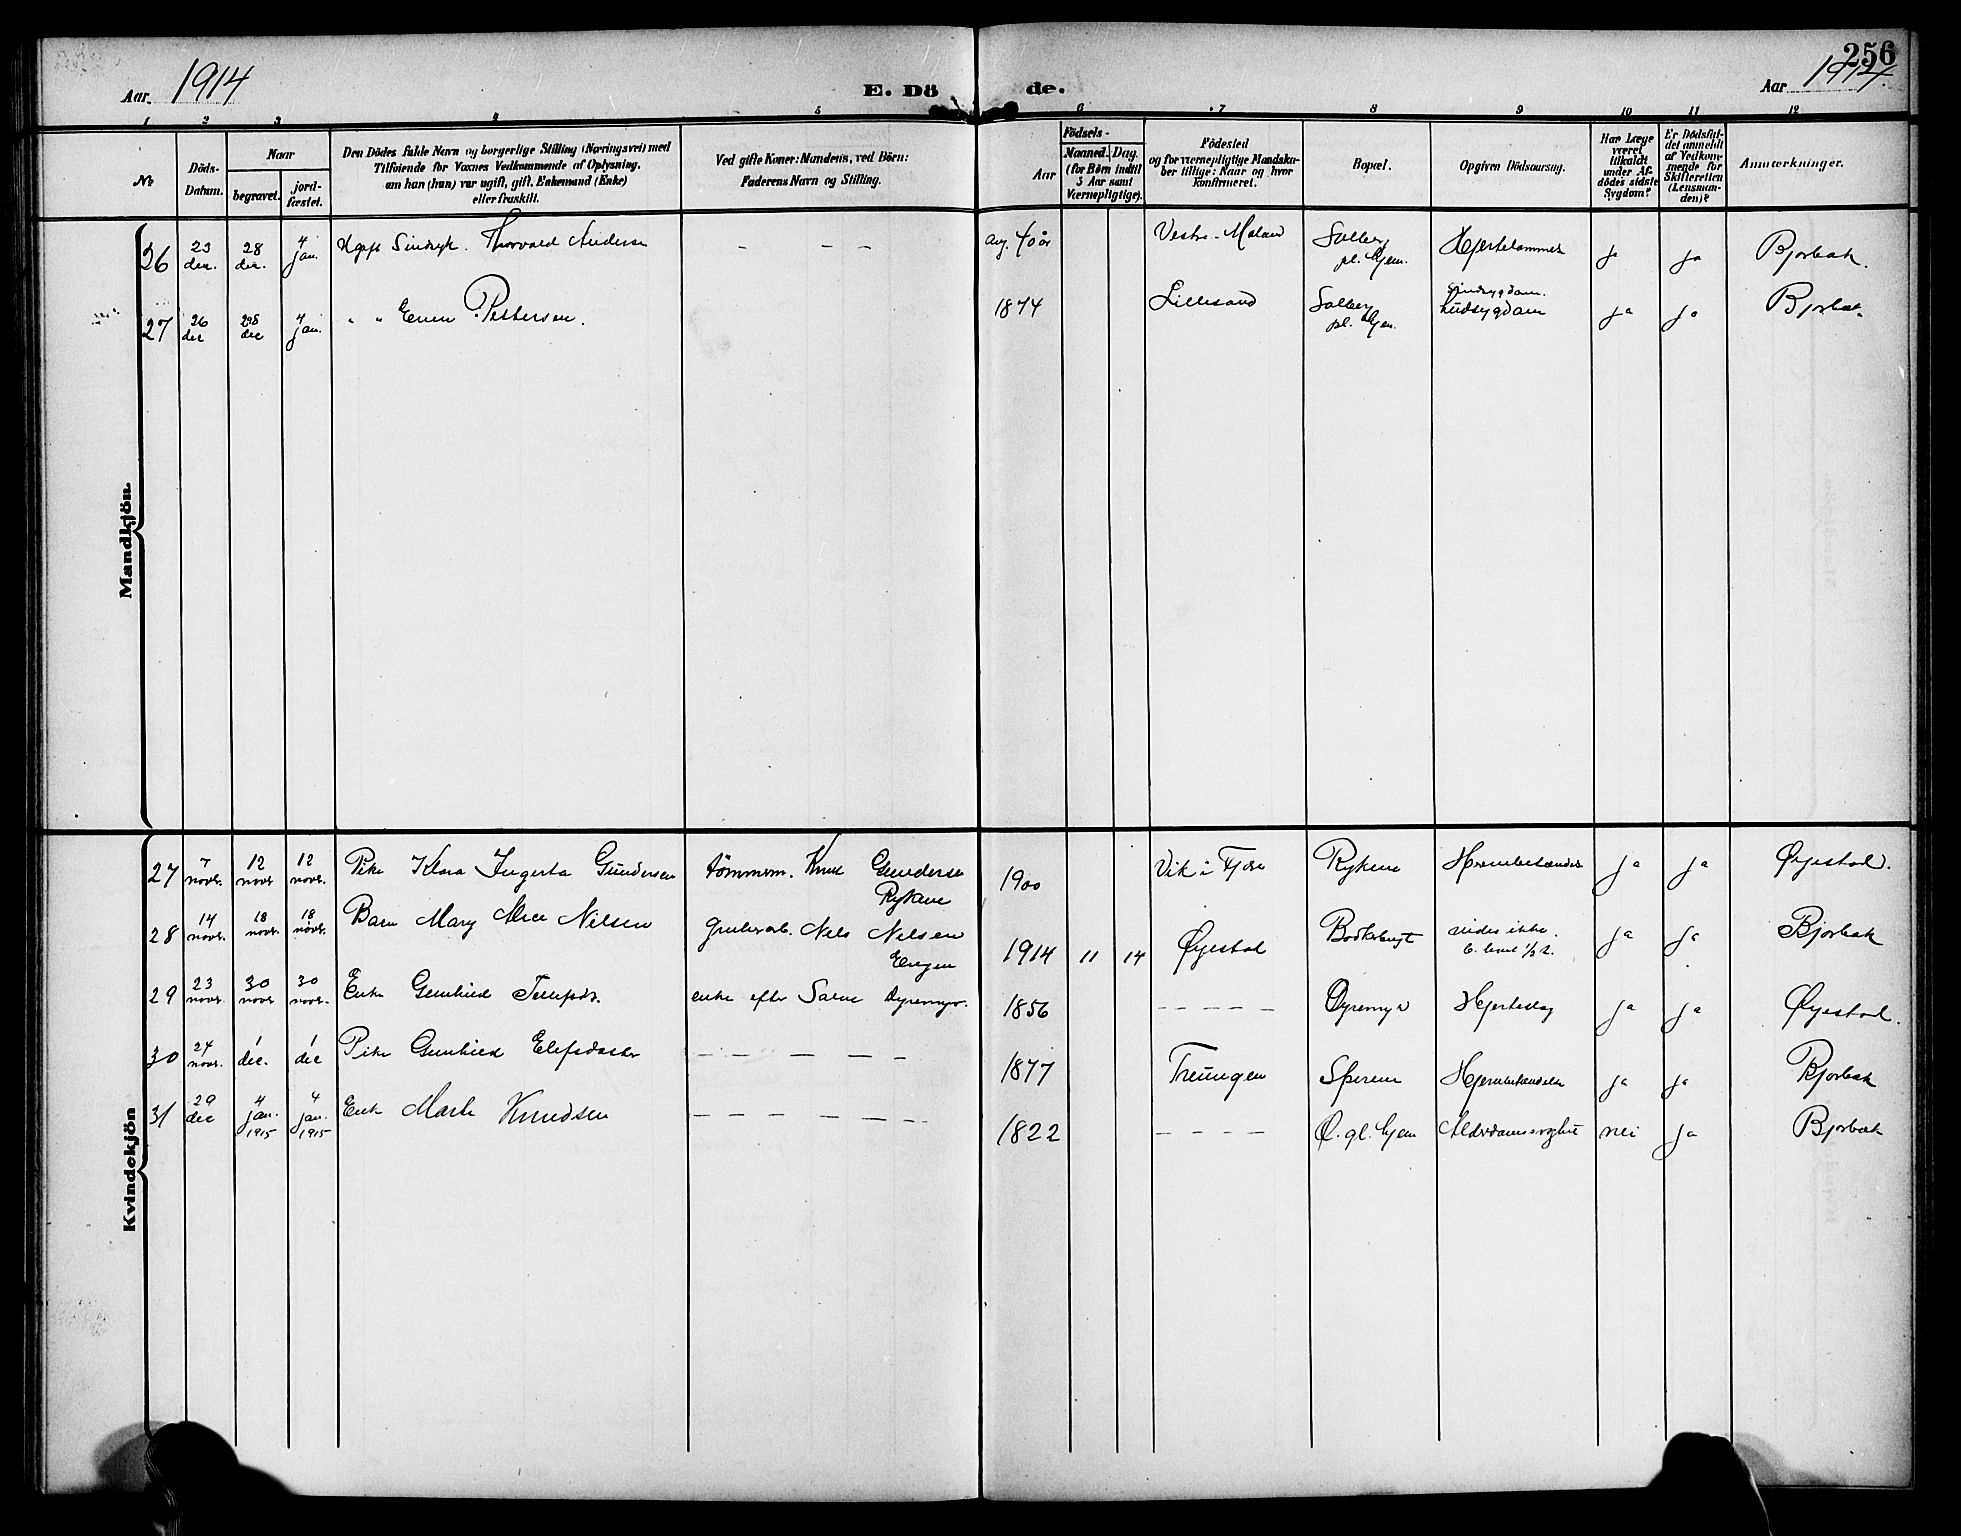 256
Aar. 1914
E. Dö de.
Aar 1914.
1 2 3 4 5 6 7 8 9 10 11 12
No
Döds-
Datum.
Naar
begravet. jord-
fæstet.
Den Dödes fulde Navn og borgerlige Stilling (Næringsvei) med
Tilföiende for Voxnes Vedkommende af Oplysning,
om han (hun) var ugift, gift, Enkemand (Enke)
eller fraskilt.
Ved gifte Koner: Mandens, ved Börn:
Faderens Navn og Stilling.
Födsels-
Aar
Maaned. Dag.
(for Börn indtil
5 Aar samt
Værnepligtige).
Födested
og for værnepligtige Mandska-
ber tillige: Naar og hvor
konfirmeret.
Bopæl.
Opgiven Dödsaarsag.
Har Læge
været
tilkaldt
under Af-
dödes sidste
Sygdom?
Er Dödsfal-
det anmeldt
af Vedkom-
mende for
Skifteretten
(Lensman-
den)?
Anmærkninger.
Mandkjön.
26 23 dec. 28 dec. 4 jan. Sindsyk. Thorvald Anders — — — 40 år Vestre-Moland Solberg pl. hjem. Hjertelammelse ja ja Bjorbæk.
27 26 dec 28 dec 4 jan. " " Even Pettersen. 1874 Lillesand Solberg pl. hjem. Sindsygdom. ja ja Bjorbæk
Kvindekjön
27 7 novr. 12 novr 12 novr. Pike Klara Ingerta Gundersen tømmerm. Knut Gundersen Rykene 1900 Vik i Fjære Rykene ja ja Øyestad.
28 14 novr. 18 novr. 18 novr. Barn Mary Alice Nilsen Grubearb. Nels Nelsen Engen 1914 11 14 Øyestad vides ikke. ja ja Bjorbæk
29 23 novr. 30 novr 30 novr. Enke Gunhild enke efter Dyremyr. 1856 — — — — Dyremyr Hjerteslag ja ja Øyestad.
30 24 novr. 1 dec. 1 dec Pike Gunhild — — — — 1877 Treungen ja ja Bjorbæk
31 29 dec 4 jan. 1915 4 jan. 1915 Enke Marte Knudsen — — — — — 1822 — — — — Ø. gl. hjem Alderdomssvaghet nei ja Bjorbæk